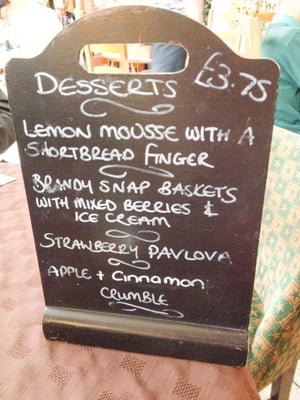 DESSERTS £3.75
LEMON MOUSSE WITH A
SHORTBREAD FINGER
BRANDY SNAP BASKETS
WITH MIXED BERRIES &
ICE CREAM
STRAWBERRY PAVLOVA
APPLE + Cinnamon
CRUMBLE